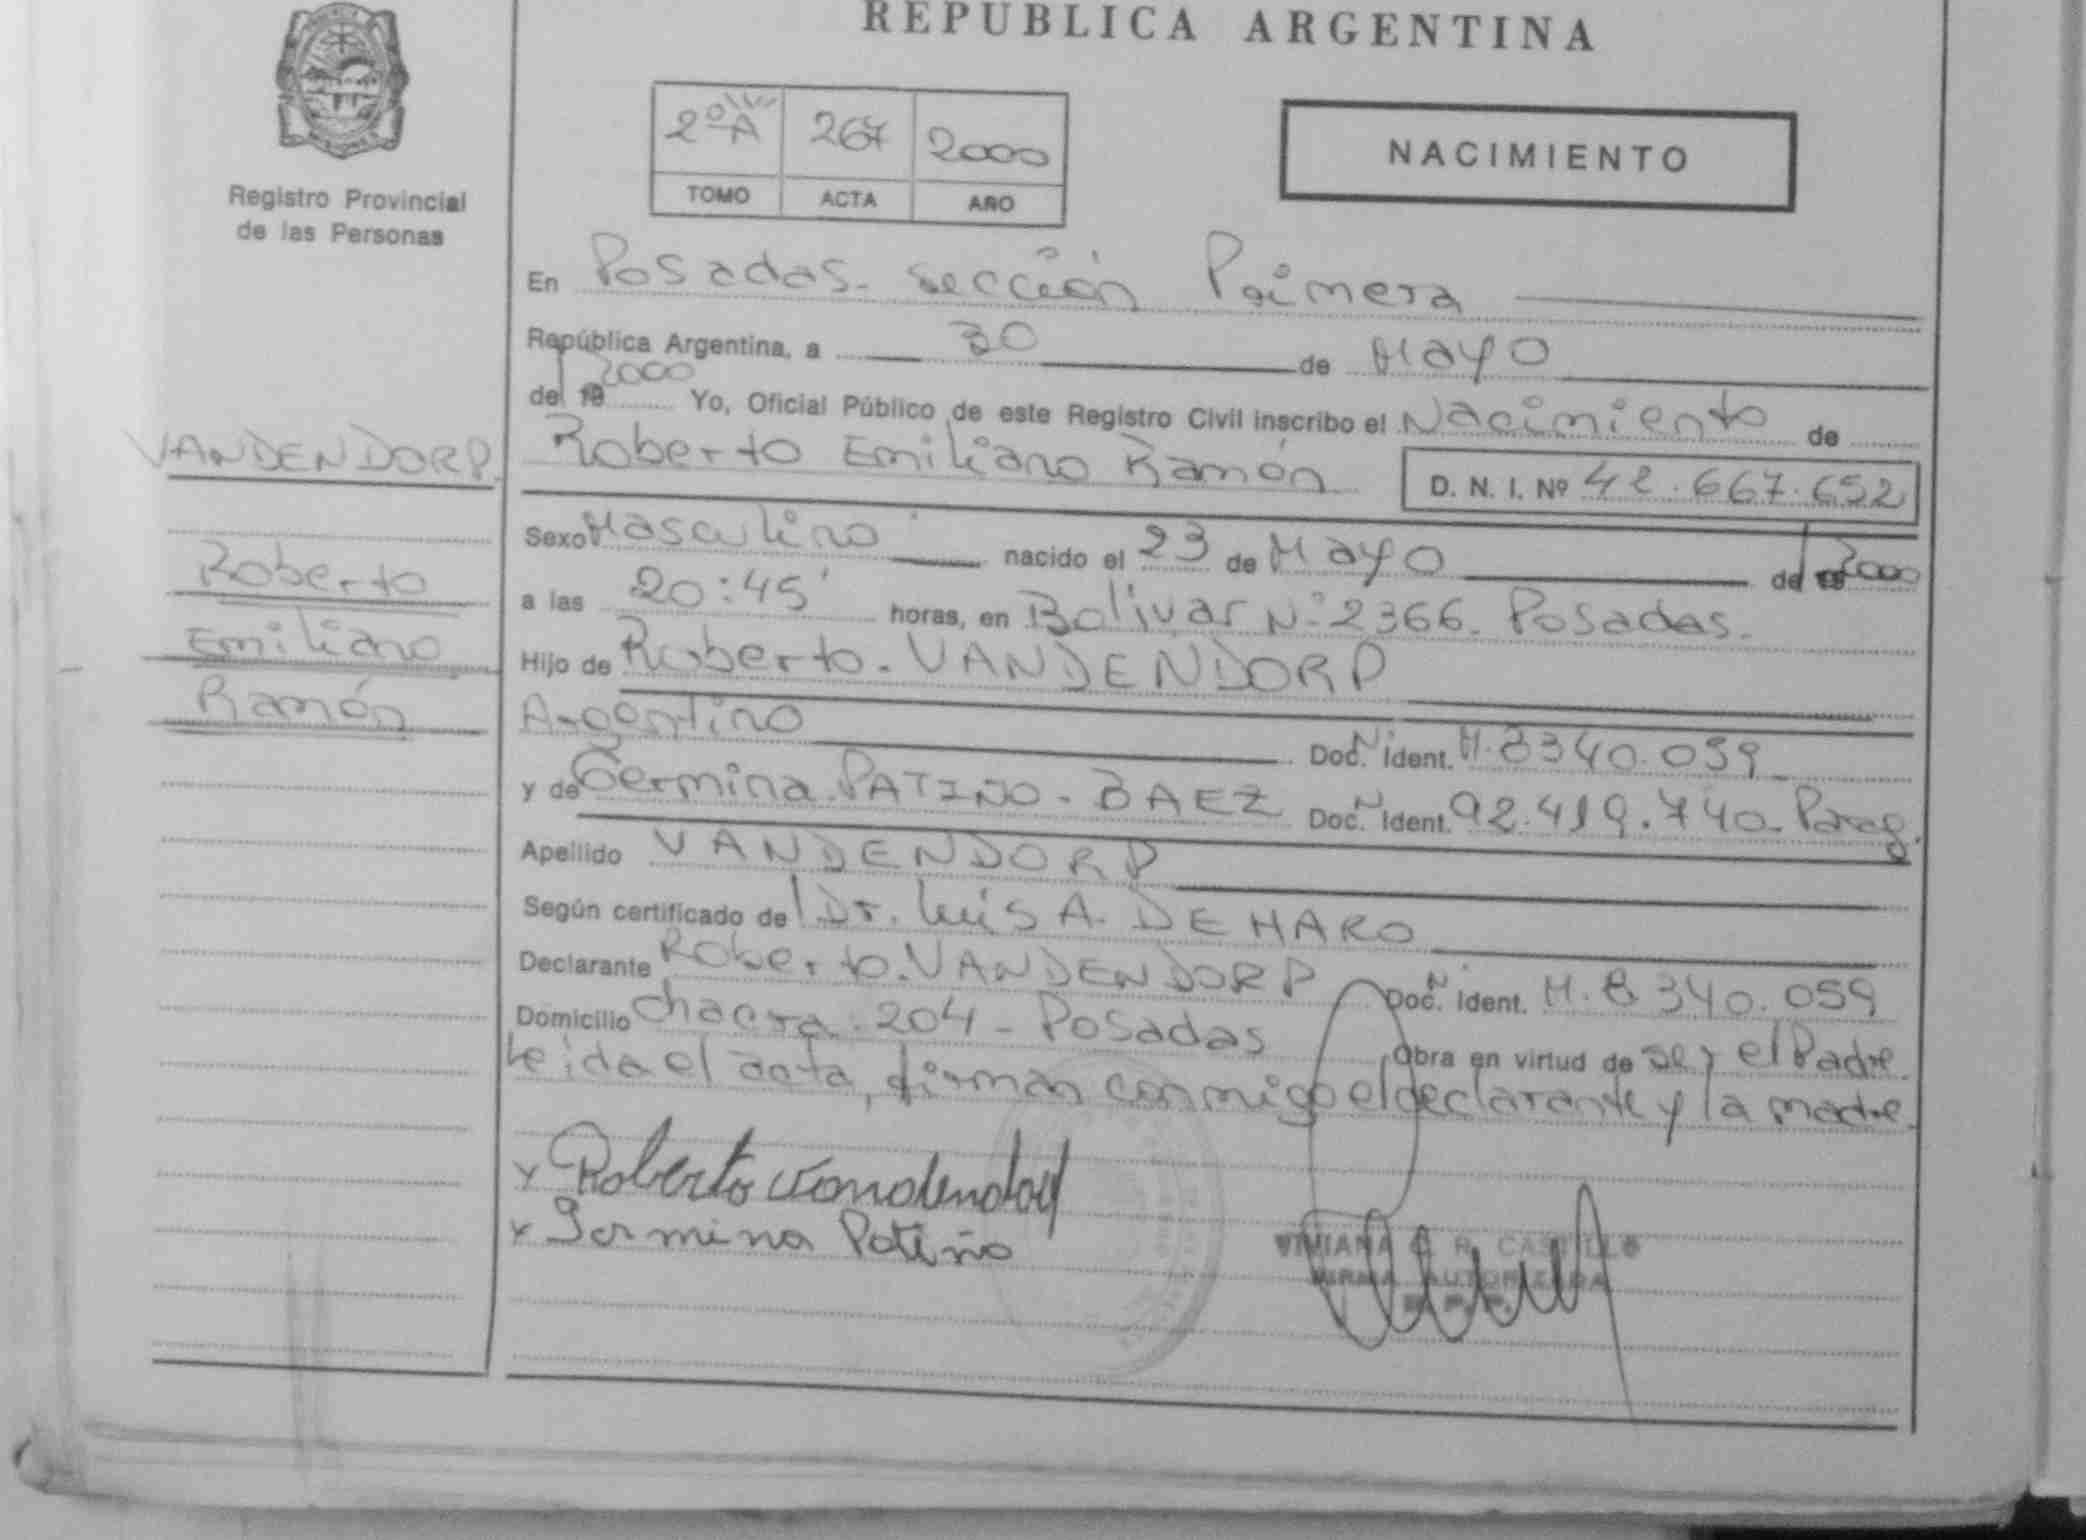 REPUBLICA ARGENTINA
Registro Provincial
de las Personas
2º A 267 2000
TOMO ACTA AÑO
NACIMIENTO
En Posadas - sección Primera
República Argentina, a 30 de Mayo
del 19 2000 Yo, Oficial Público de este Registro Civil inscribo el Nacimiento de
VANDENDORP.
Roberto Emiliano Ramón D. N. I. Nº 42.667.652
Sexo Masculino nacido el 23 de Mayo del 2000
Roberto
a las 20:45' horas, en Bolivar Nº 2366. Posadas.
Emiliano
Hijo de Roberto. VANDENDORP
Ramón
Argentino Doc. Ident. M. 8340.059
y de Germina PATIÑO - BAEZ Doc. Ident. 92.419.740. Parag.
Apellido VANDENDORP
Según certificado del Dr. Luis A. DE HARO
Declarante Roberto. VANDENDORP Doc. Ident. M. 8340.059
Domicilio Chacra 204 - Posadas Obra en virtud de ser el Padre.
Leida el acta, firman conmigo el declarante y la madre.
x Roberto Vandendorp
x Germina Patiño
VIVIANA R. CASTILLO
FIRMA AUTORIZADA